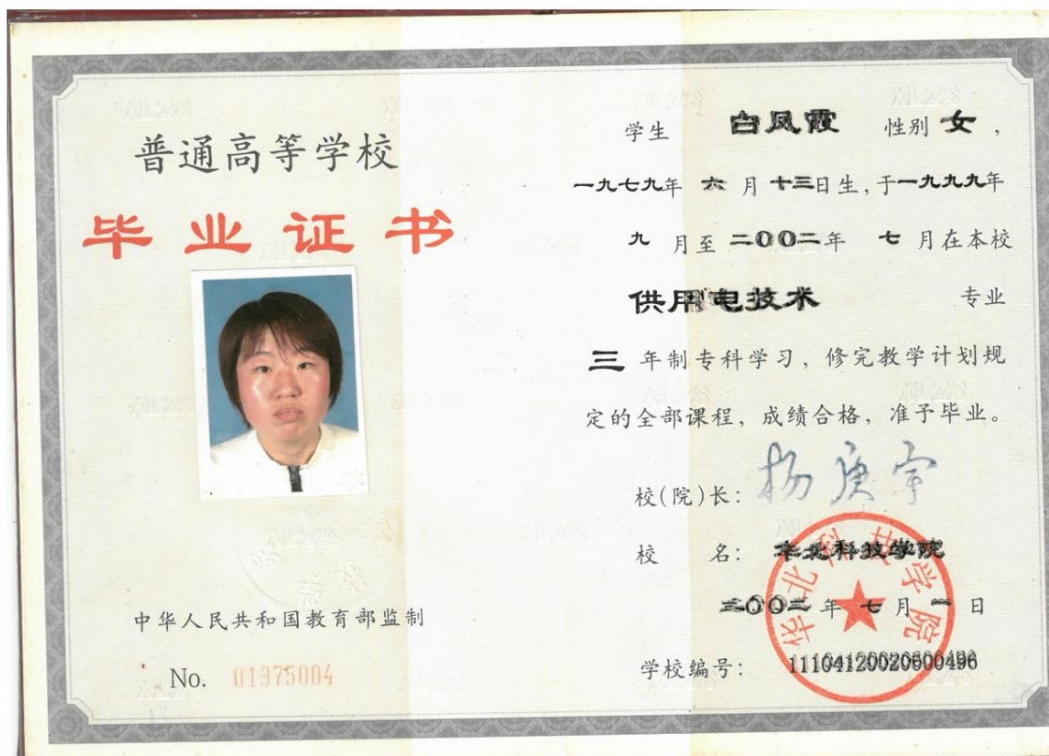 普通高等学校
毕业证书
中华人民共和国教育部监制
No. 01975004
学生 白凤霞 性别 女,
一九七九年 六 月 十三日生,于一九九九年
九 月至 二00二年 七 月在本校
供用电技术 专业
三 年制专科学习,修完教学计划规
定的全部课程,成绩合格,准予毕业。
校(院)长: 杨庚宇
校 名: 华北科技学院
二00二 年 七 月 一 日
学校编号: 111041200206000496
华北科技学院